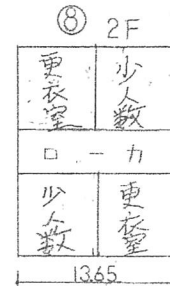 ⑧ 2F
更衣室 少人数
ローカ
少人数 更衣室
13.65